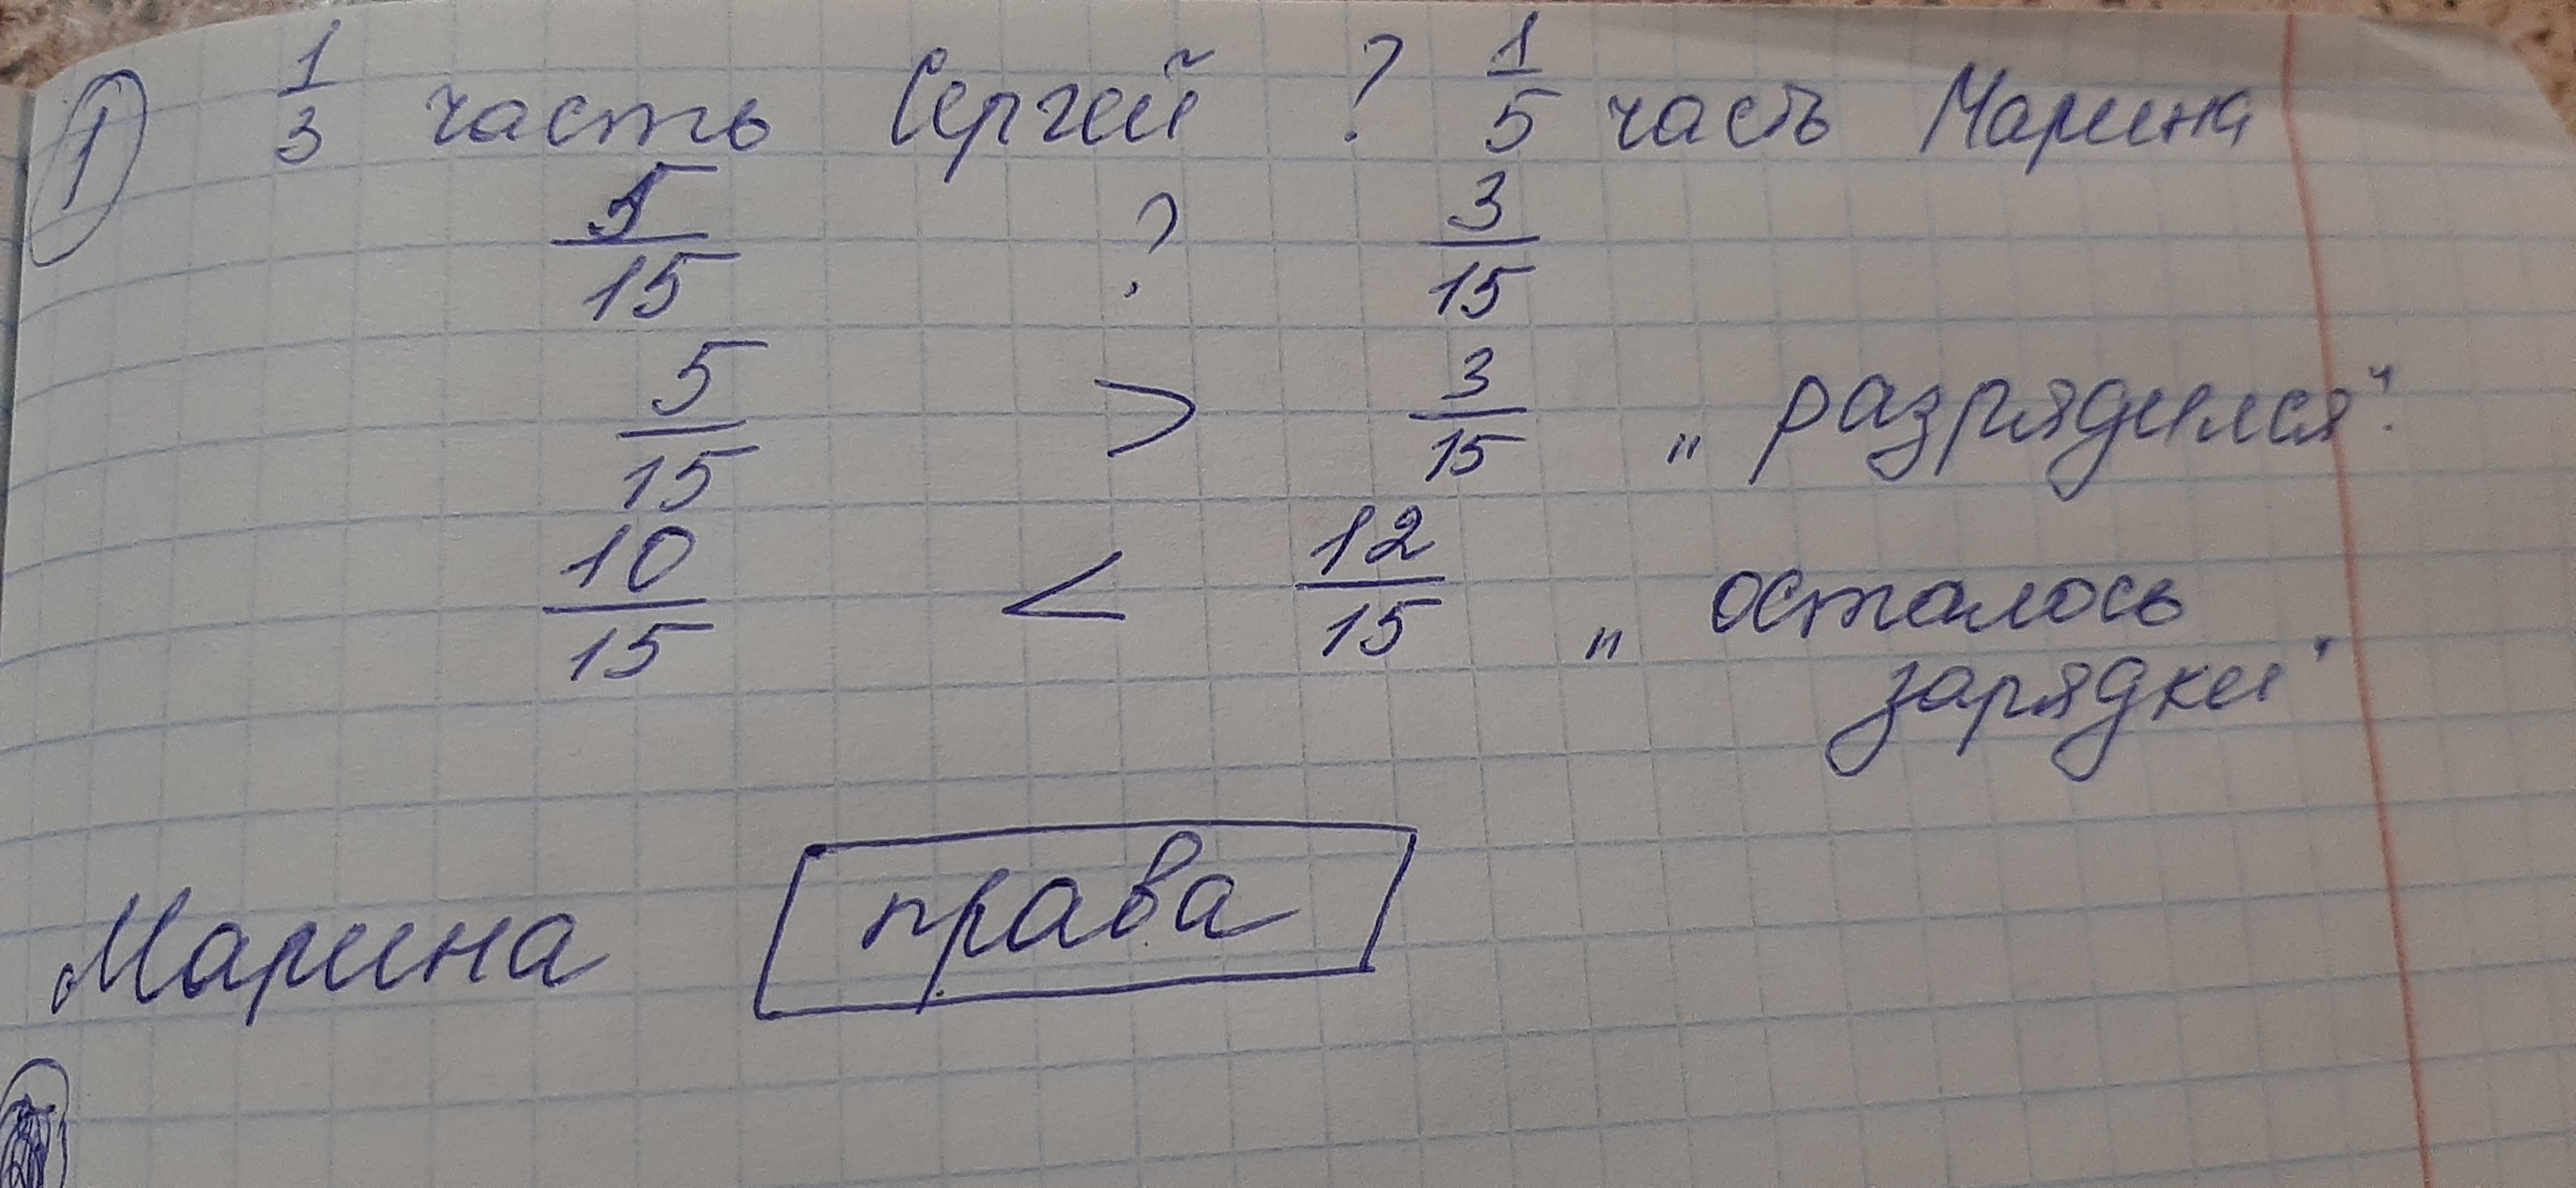 ① 1/3 часть Сергей ? 1/5 часть Марина
5/15 ? 3/15
5/15 > 3/15 „разрядился".
10/15 < 12/15 „осталось
зарядки".
Марина права